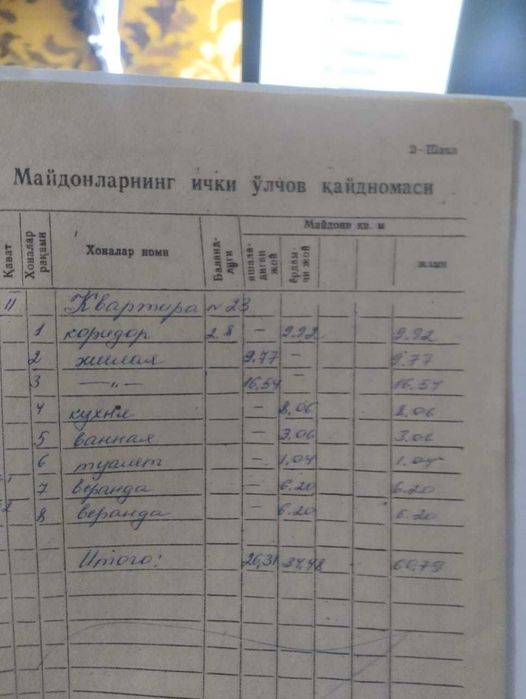 2- Шакл
Майдонларнинг ички ўлчов қайдномаси
Қават Хоналар рақами Хоналар номи Баланд-лиги Майдони кв. м
яшала-диган жой ёрдам-чи жой жами
II Квартира №23
1 коридор 2.8 — 9.92 9.92
2 жилая 9.77 — 9.77
3 —"— 16.54 — 16.54
4 кухня — 8.06 8.06
5 ванная — 3.06 3.06
6 туалет — 1.04 1.04
7 веранда — 6.20 6.20
8 веранда — 6.20 6.20
Итого: 26,31 34,48 60,79